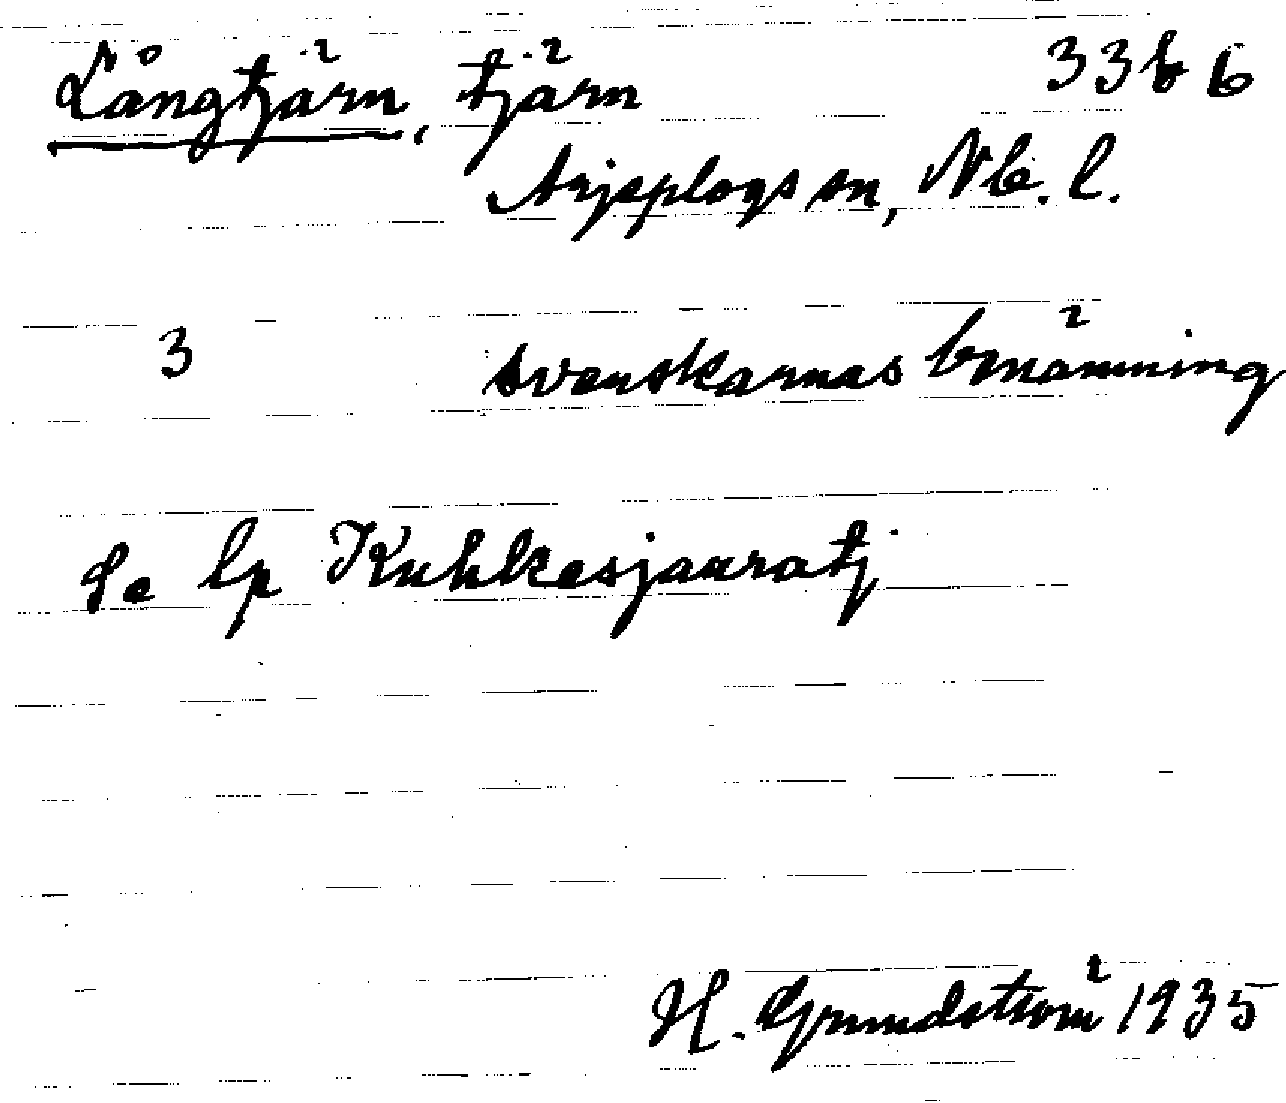 Långtjärn, tjärn 33b6
Arjeplogs sn, Nb. l.
3 svenskarnas benämning
Se lp Kuhkesjauratj
H. Grundström 1935